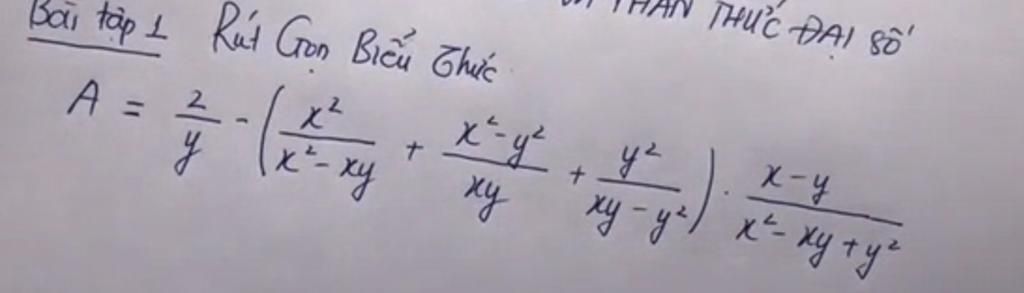 THỨC ĐẠI SỐ
Bài tập 1 Rút Gọn Biểu Thức
A = \frac{2}{y} - \left( \frac{x^2}{x^2 - xy} + \frac{x^2 - y^2}{xy} + \frac{y^2}{xy - y^2} \right) \cdot \frac{x - y}{x^2 - xy + y^2}